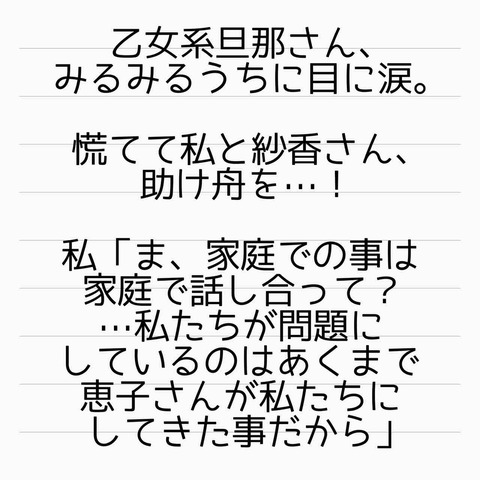 乙女系旦那さん、
みるみるうちに目に涙。
慌てて私と紗香さん、
助け舟を…！
私「ま、家庭での事は
家庭で話し合って？
…私たちが問題に
しているのはあくまで
恵子さんが私たちに
してきた事だから」